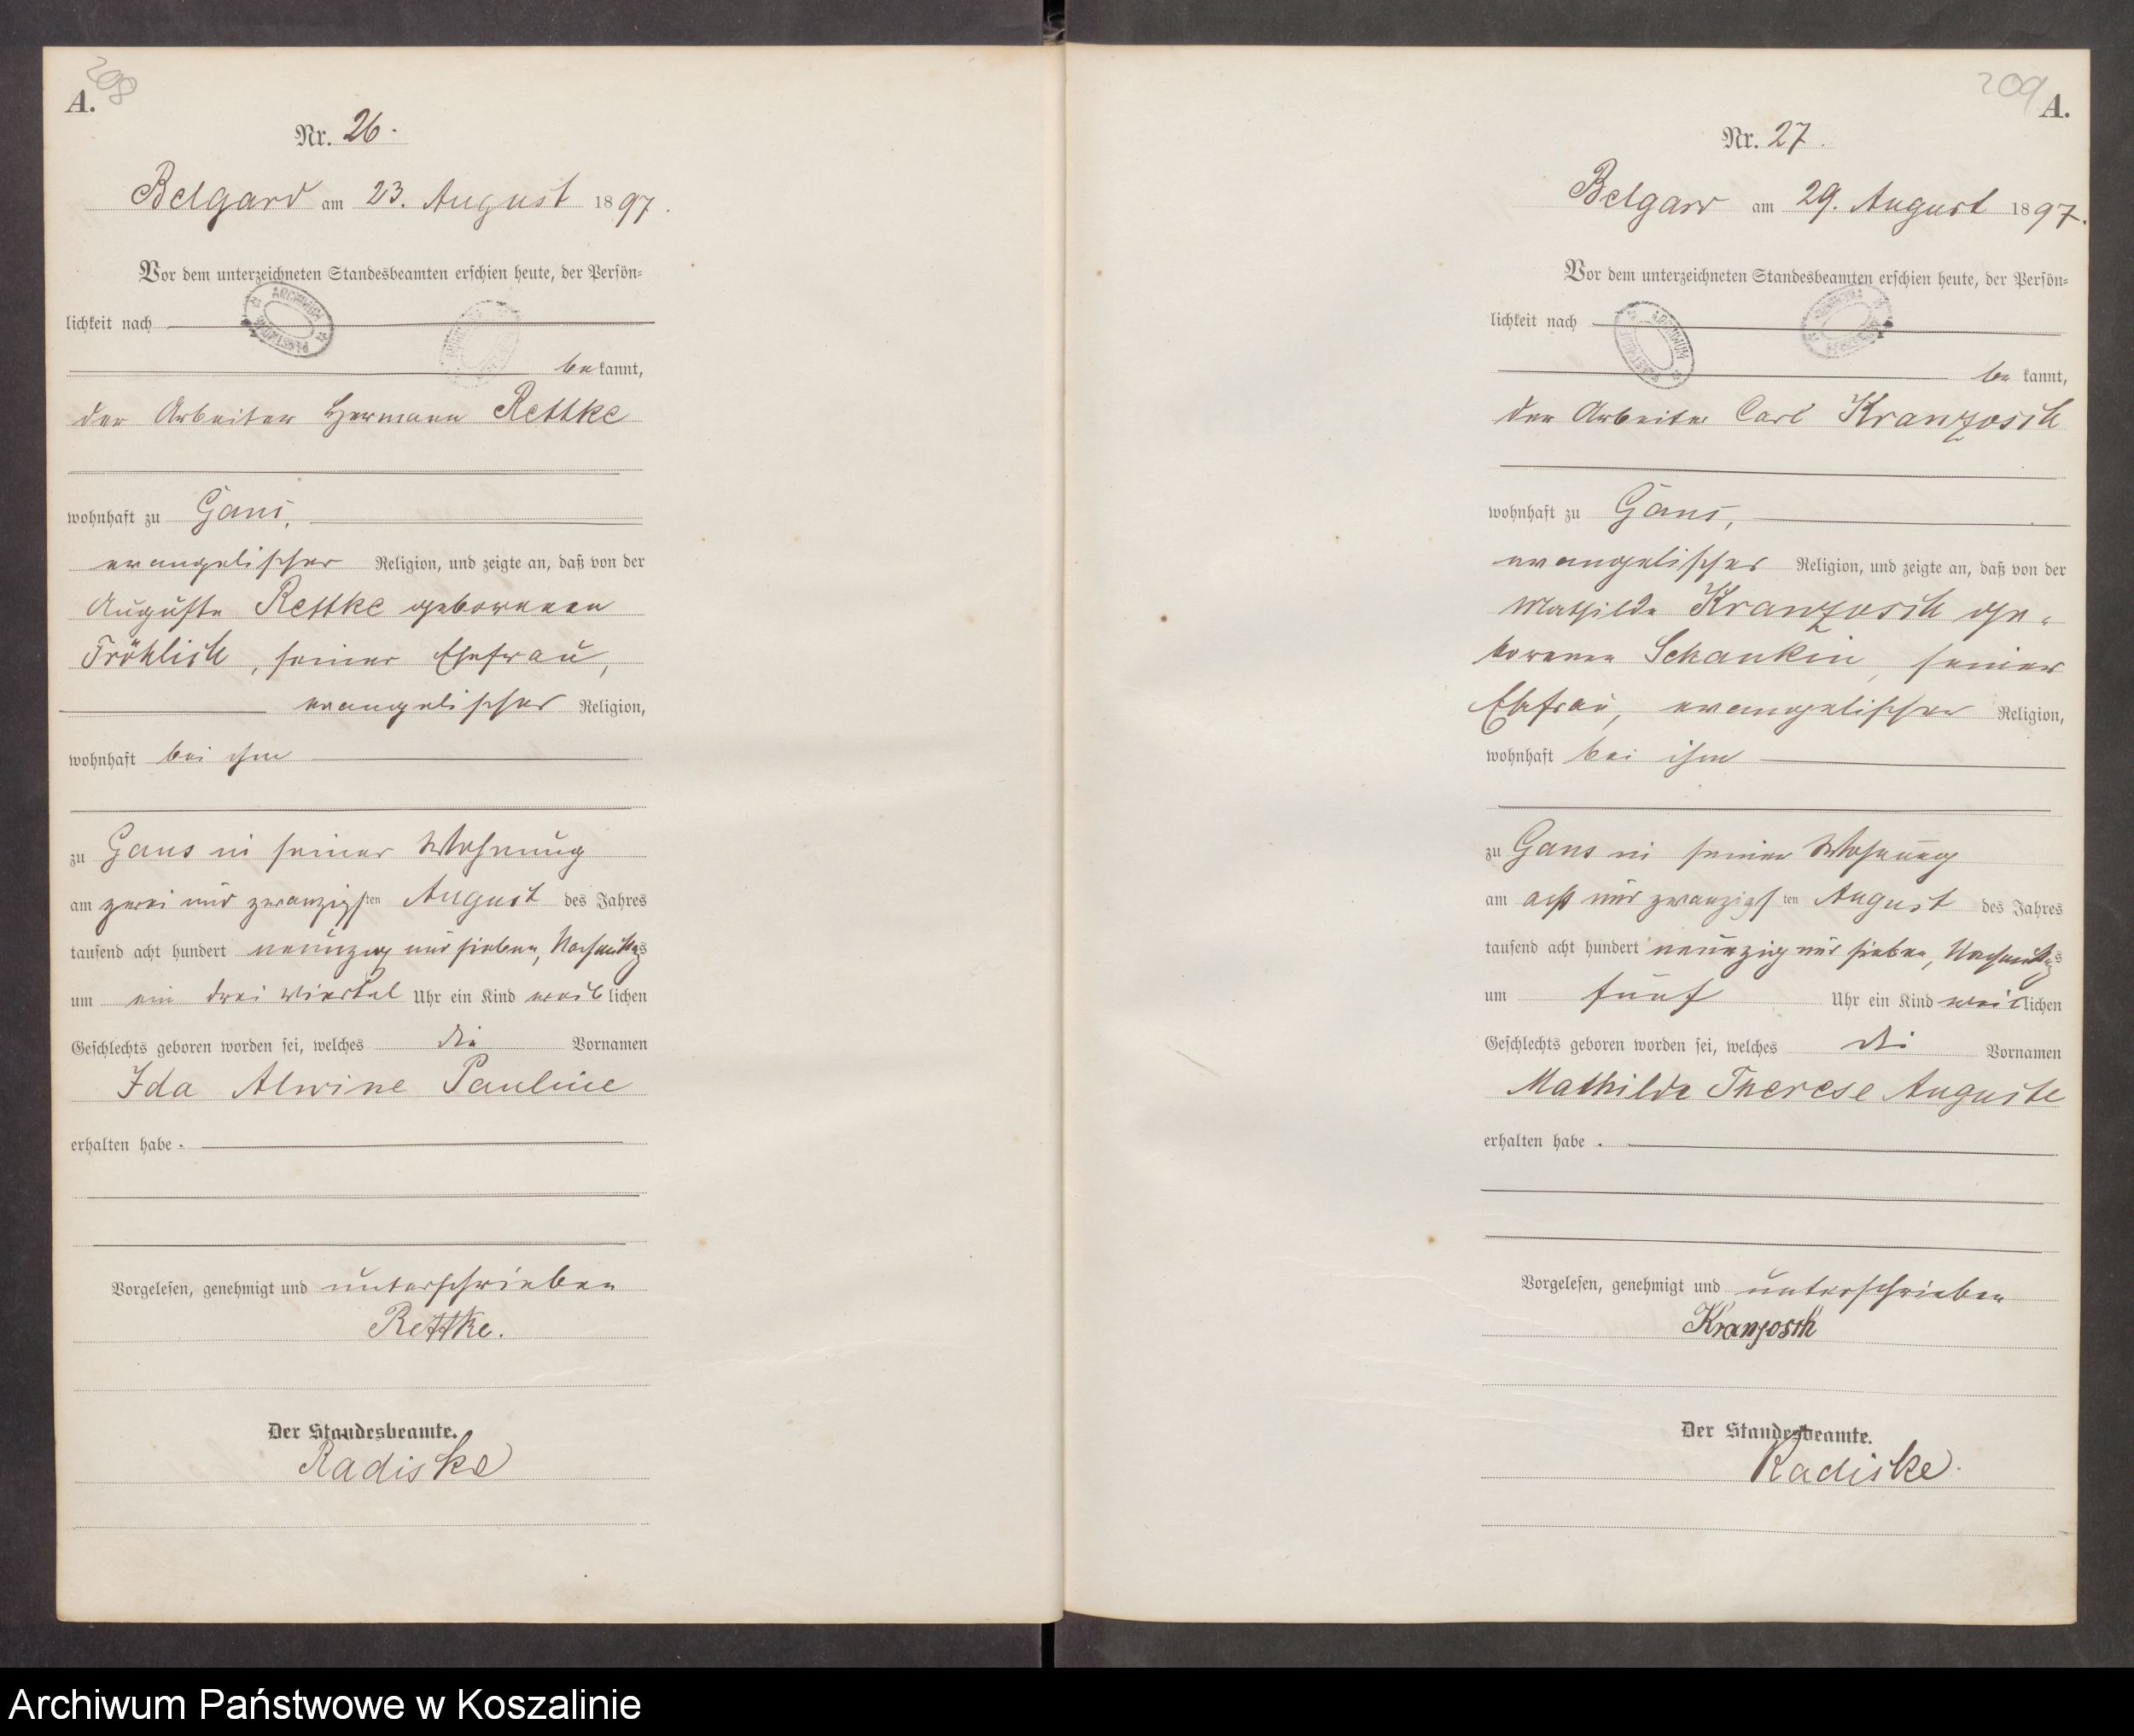 208
A.
Nr. 26.
Belgard am 23. August 1897.
Vor dem unterzeichneten Standesbeamten erschien heute, der Persön-
lichkeit nach
be kannt,
der Arbeiter Hermann Rettke
wohnhaft zu Gans,
evangelischer Religion, und zeigte an, daß von der
Auguste Rettke geborenen
Fröhlich, seiner Ehefrau,
evangelischer Religion,
wohnhaft bei ihm
zu Gans in seiner Wohnung
am zwei und zwanzigsten August des Jahres
tausend acht hundert neunzig und sieben, Nachmittags
um ein drei Viertel Uhr ein Kind weiblichen
Geschlechts geboren worden sei, welches die Vornamen
Ida Alwine Pauline
erhalten habe.
Vorgelesen, genehmigt und unterschrieben
Rettke.
Der Standesbeamte.
Radiske
209
A.
Nr. 27.
Belgard am 29. August 1897.
Vor dem unterzeichneten Standesbeamten erschien heute, der Persön-
lichkeit nach
be kannt,
der Arbeiter Carl Kranzosch
wohnhaft zu Gans,
evangelischer Religion, und zeigte an, daß von der
Mathilde Kranzosch ge-
borenen Schankin, seiner
Ehefrau, evangelischer Religion,
wohnhaft bei ihm
zu Gans in seiner Wohnung
am acht und zwanzigsten August des Jahres
tausend acht hundert neunzig und sieben, Nachmittags
um fünf Uhr ein Kind weiblichen
Geschlechts geboren worden sei, welches die Vornamen
Mathilde Therese Auguste
erhalten habe.
Vorgelesen, genehmigt und unterschrieben
Kranzosch
Der Standesbeamte.
Radiske.
Archiwum Państwowe w Koszalinie